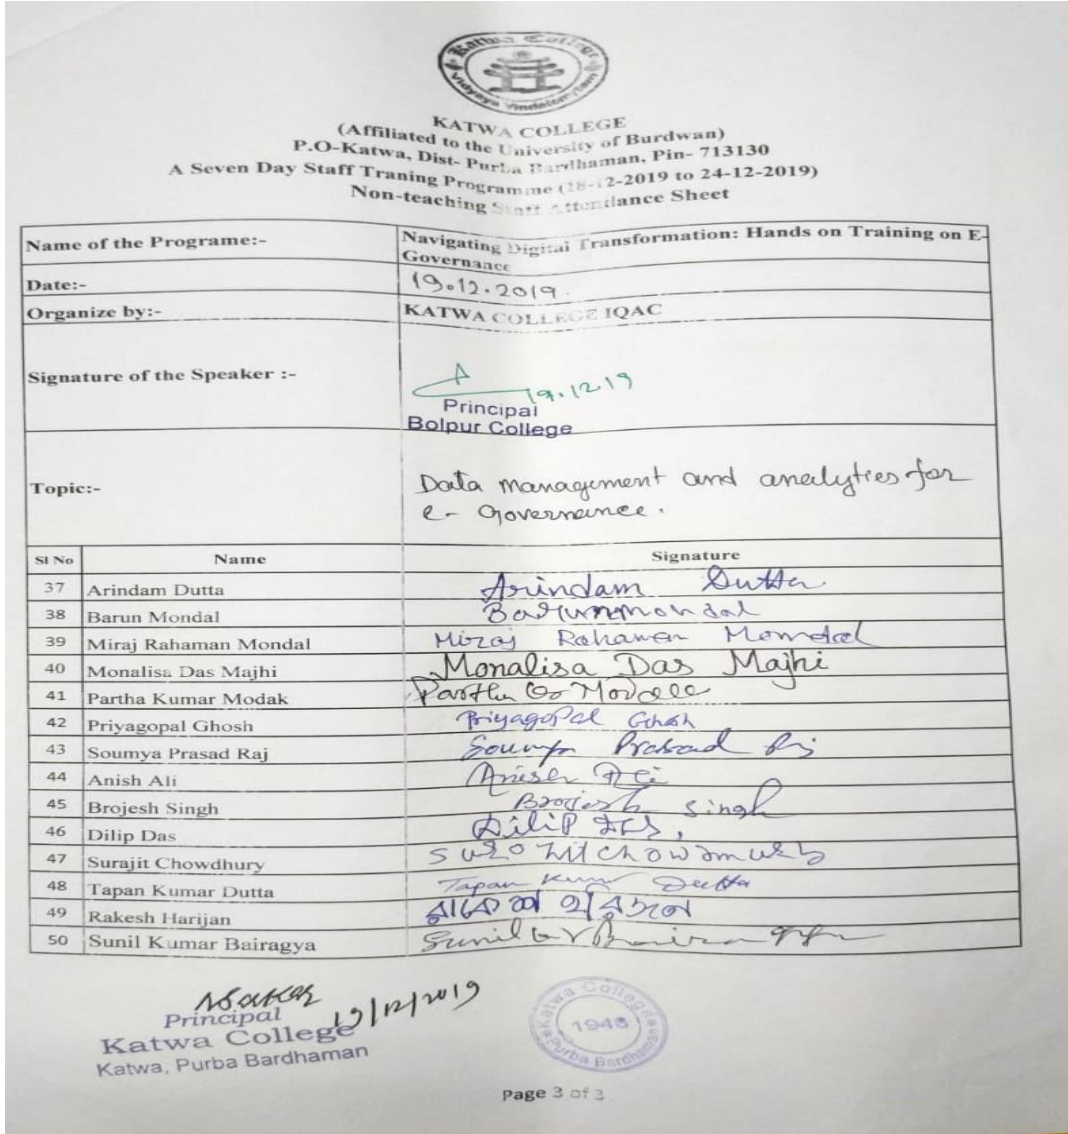 Katwa College
Vidyaya Vindateamrytam
KATWA COLLEGE
(Affiliated to the University of Burdwan)
P.O-Katwa, Dist- Purba Bardhaman, Pin- 713130
A Seven Day Staff Traning Programme (18-12-2019 to 24-12-2019)
Non-teaching Staff Attendance Sheet
Name of the Programe:- Navigating Digital Transformation: Hands on Training on E-
Governance
Date:- 19.12.2019.
Organize by:- KATWA COLLEGE IQAC
Signature of the Speaker :- 19.12.19
Principal
Bolpur College
Topic:- Data management and analytics for
e- Governance.
Sl No Name Signature
37 Arindam Dutta Arindam Dutta
38 Barun Mondal Barun mondal
39 Miraj Rahaman Mondal Miraj Rahaman Mondal
40 Monalisa Das Majhi Monalisa Das Majhi
41 Partha Kumar Modak Partha Modak
42 Priyagopal Ghosh Priyagopal Ghosh
43 Soumya Prasad Raj Soumya Prasad Raj
44 Anish Ali Anish Ali
45 Brojesh Singh Brojesh Singh
46 Dilip Das Dilip Das,
47 Surajit Chowdhury
48 Tapan Kumar Dutta Tapan Kumar Dutta
49 Rakesh Harijan রাকেশ হরিজন
50 Sunil Kumar Bairagya Sunil Kr Bairagya
19/12/2019
Principal
Katwa College
Katwa, Purba Bardhaman
Katwa College
1948
Purba Bardhaman
Page 3 of 3